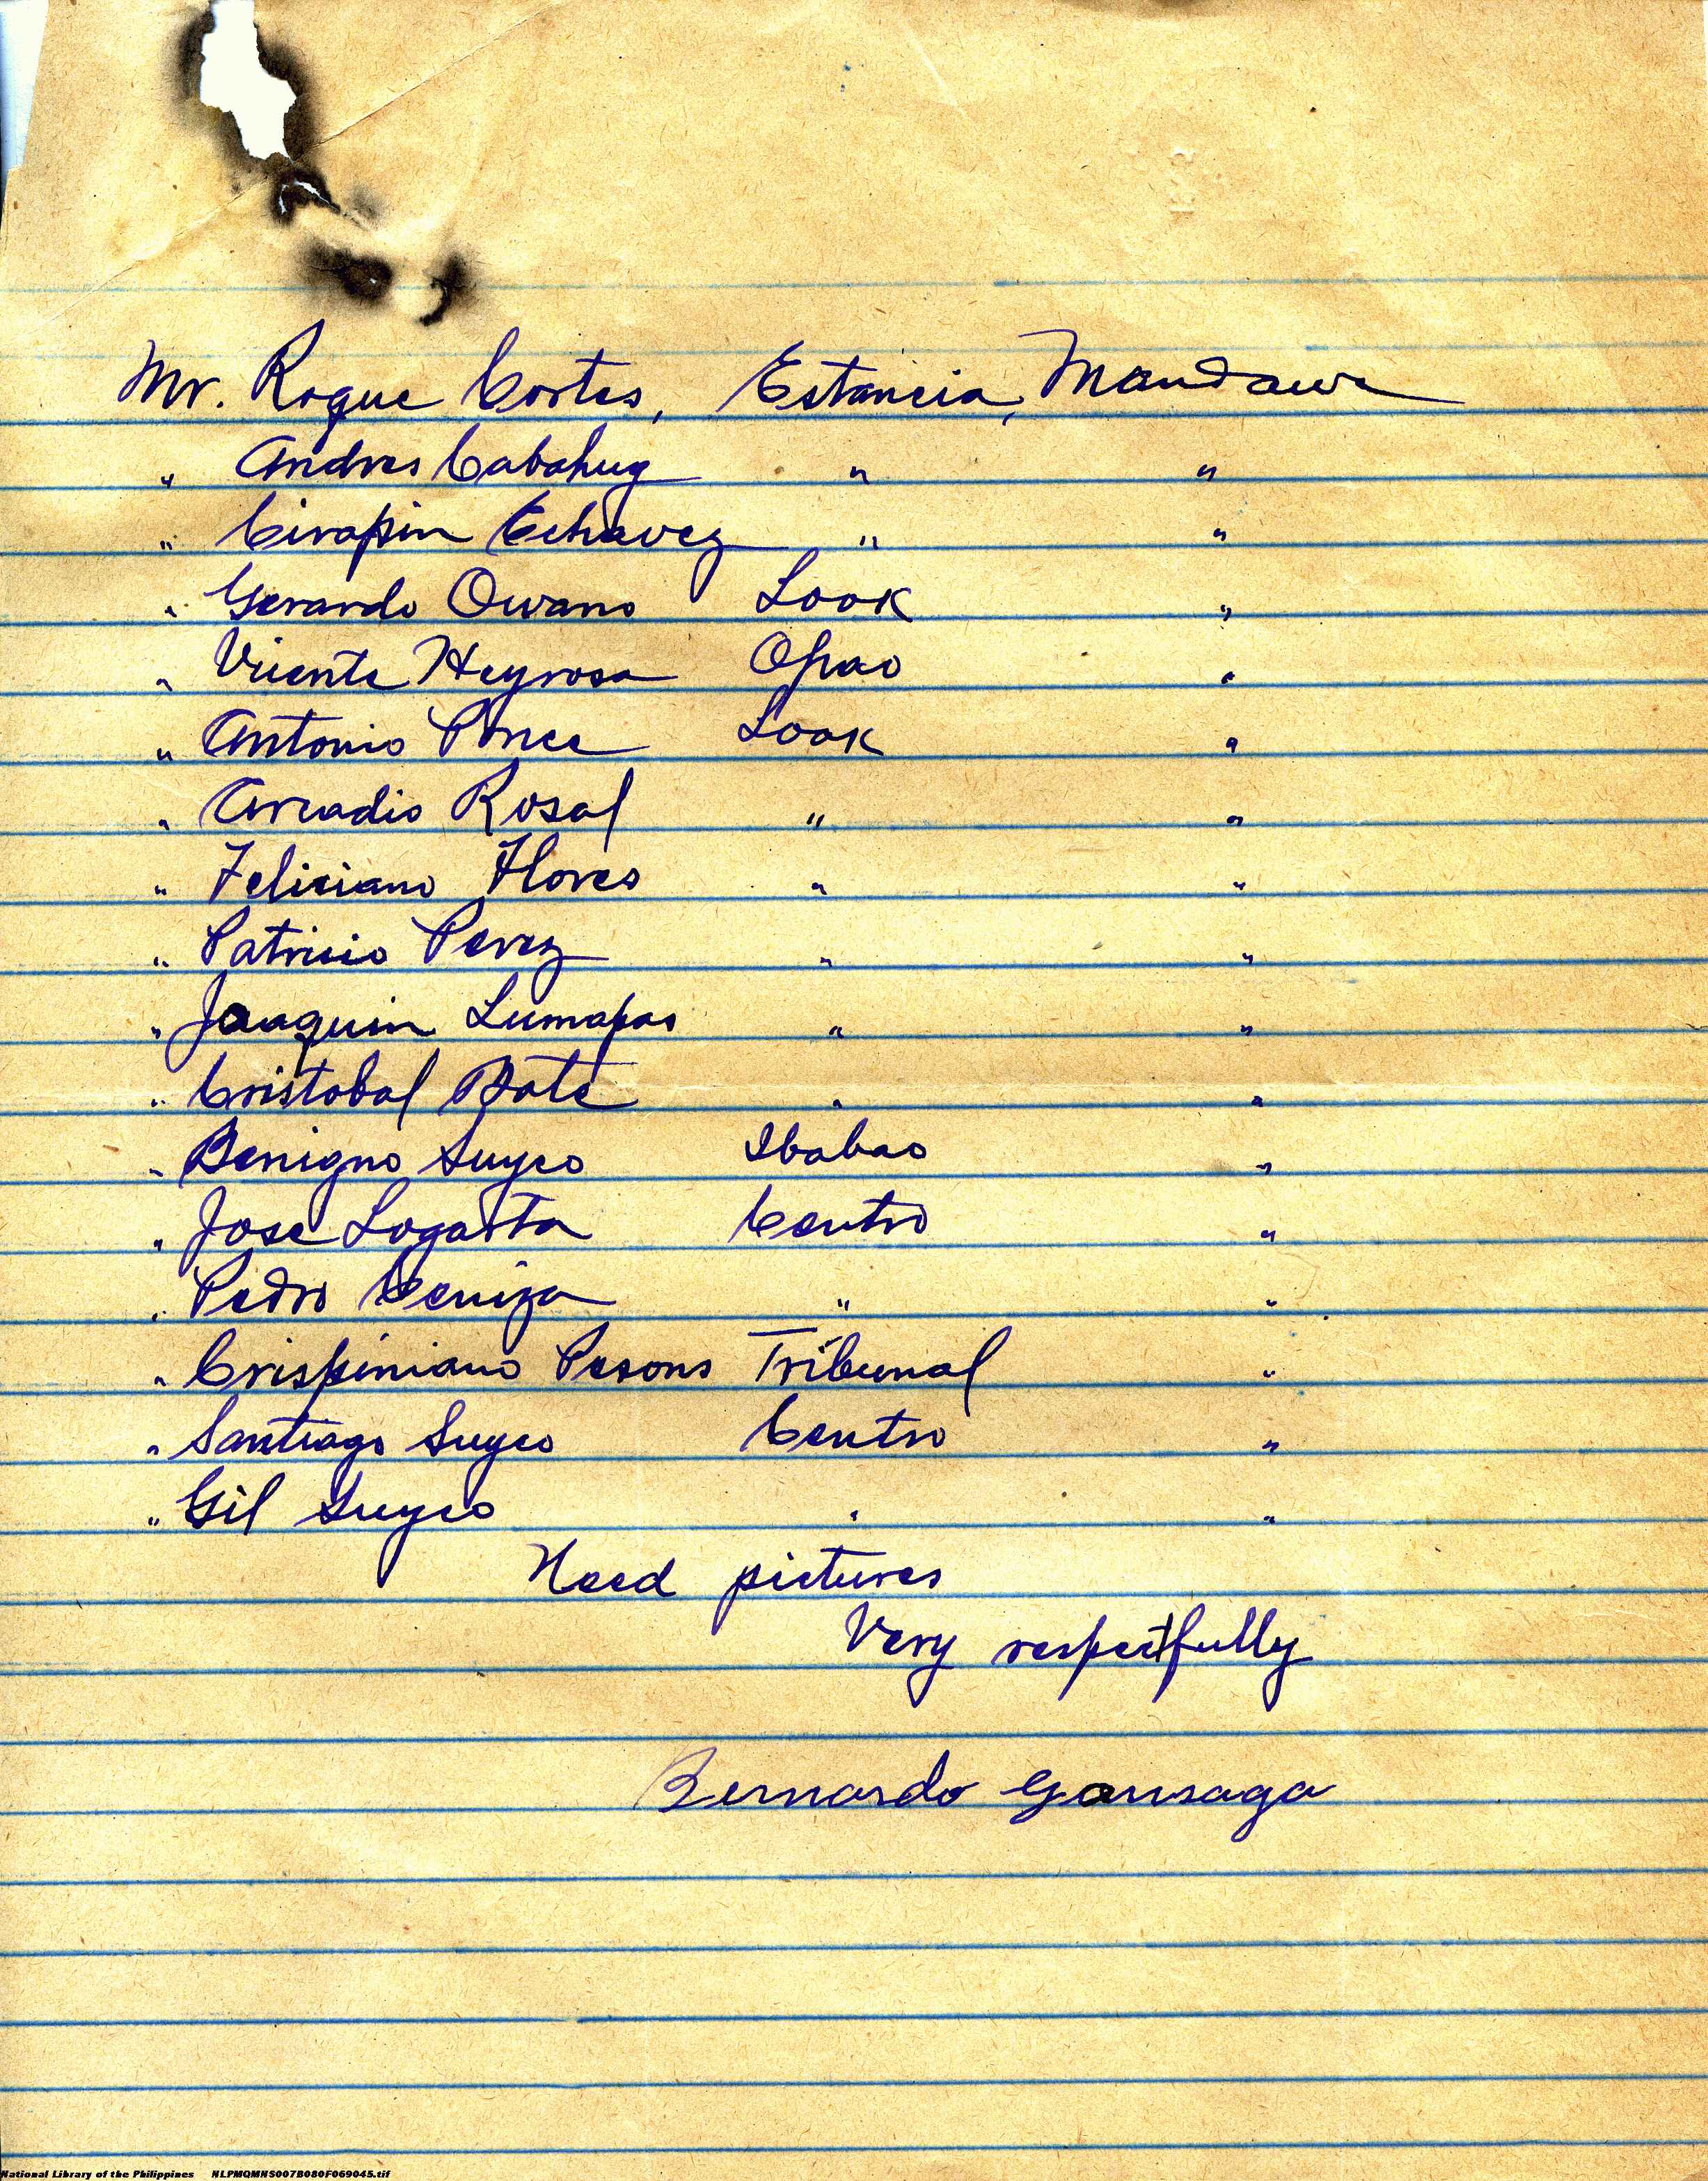 Mr. Roque Cortes, Estancia, Mandaue
" Andres Cabahug " "
" Cirapin Echavez " "
" Gerardo Ouano Look "
" Vicente Heyrosa Opao "
" Antonio Ponce Look "
" Arcadio Rosal " "
" Feliciano Flores " "
" Patricio Perez " "
" Joaquin Lumapas " "
" Cristobal Bate " "
" Benigno Suyco Ibabao "
" Jose Logarta Centro "
" Pedro Ceniza " "
" Crispiniano Pesons Tribunal "
" Santiago Suyco Centro "
" Gil Suyco " "
Need pictures
Very respectfully
Bernardo Gonsaga
National Library of the Philippines NLPMQMNS007B080F069045.tif